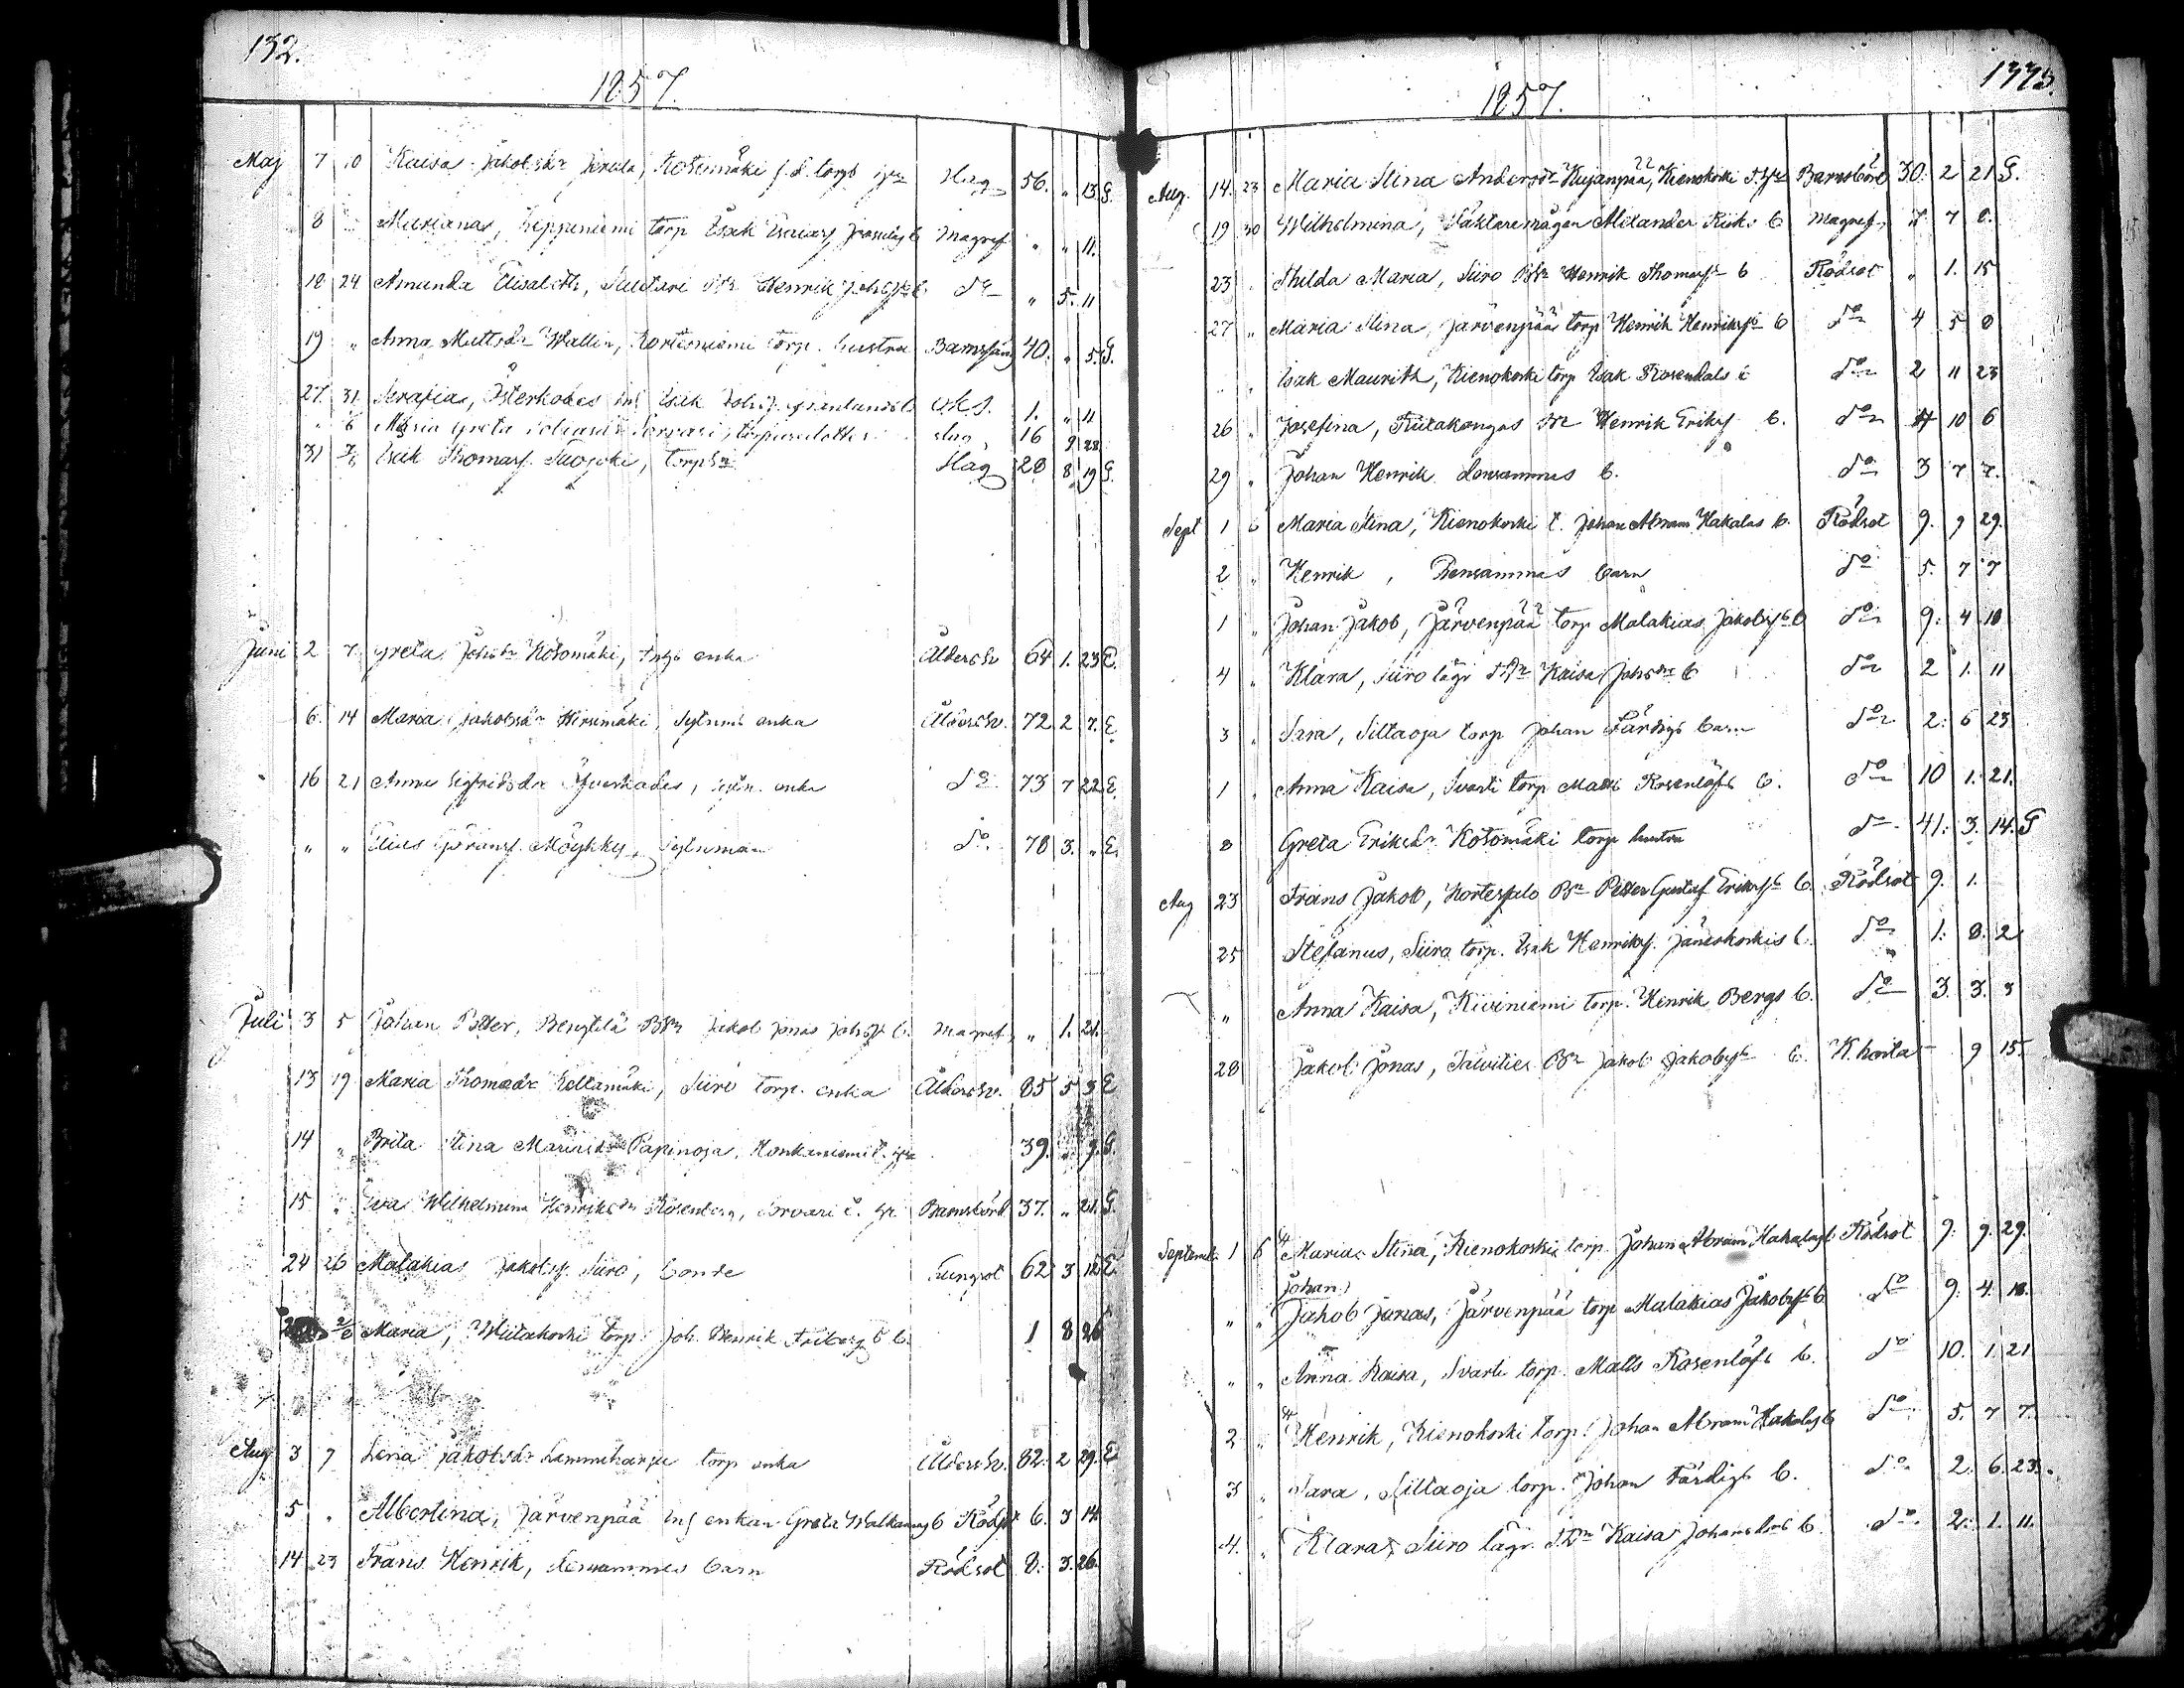 132.
1857.
Maj 7 10 Kaisa Jakobsdr Kotomäki f. d. torp Slag 56. " 13 G.
8 " torp Isak Magref " " 11.
18 24 Amanda Elisabeth, Henrik Johsfs b. do " 5. 11
19 " Anna Mattsdr Wallin, Kortesniemi torp. hustru 40. " 5. G.
27 31 Serafias, Österkades inh Isak 1. " 11
" 6 Maria Greta Sorvari, slag 16 9 28
31 7/6 Isak Thomasf. torp Slag 28 8 19 G.
Juni 2 7 Greta Johsdr Kotomäki, enka Åldersk. 64 1. 23 E.
6. 14 Maria Jakobsdr Hirsimäki, Sytnings enka Åldersk. 72 2 7. E.
16 21 Anna Sigfridsdr enka do 73 7 22 E.
" " Elias Göransf. Möykky, Sytnman do 78 3. " E.
Juli 3 5 Johan Petter, Bengtilä Bdr Jakob Jonas Johsfs b. Magref " 1. 21.
13 19 Maria Thomasdr Siiro torp. enka Åldersk. 85 5 3 E
14 " Brita Stina Papinoja, Honkaniemi t. 39. " 9. G.
15 " Eva Wilhelmina Henriksdr Rosenberg, Sorvari t. Barnsbörd 37. " 21. G.
24 26 Malakias Jakobsf. Siiro, bonde Lungsot 62 3 12 E.
2/8 Maria, Wiitakoski torp. Joh. Henrik b. 1 8 26
Aug 3 7 Lena Jakobsdr Lamminharju torp enka Åldersk. 82. 2 29. E
5 " Albertina, Järvenpää enkan Greta b Rödsot 6. 3 14
14 23 Frans Henrik, densammes barn Rödsot 8. 3. 26.
133.
1857.
Aug. 14. 23 Maria Stina Andersdr Kujanpää, Kienokoski Barnsbörd 30. 2 21 G.
19 30 Wilhelmina, Melander b Magref 7 0.
23 " Thilda Maria, Siiro Bdr Henrik Thomasfs b Rödsot " 1. 15
27 " Maria Stina, Järvenpää torp Henrik Henriksfs b do 4 5 0
" Isak Maurits, Kienokoski torp Isak Rosendals b do 2 11 23
26 " Josefina, Riitakangas Henrik Eriksf b. do 10 6
29 " Johan Henrik densammas b. do 3 7 7.
Sept 1 6 Maria Stina, Kienokoski t. Johan Abram Hakalas b. Rödsot 9. 9 29.
2 " Henrik, Densammas barn do 5. 7 7
1 " Johan Jakob, Järvenpää torp Malakias Jakobsfs b do 9. 4 18
4 " Klara, Siiro lägr Kaisa Johsdrs b do 2 1. 11
3 " Sara, Siltaoja torp Johan Färdigs barn do 2. 6 23
1 " Anna Kaisa, Svarti torp Matts Rosenlöfs b. do 10 1. 21.
8 Greta Eriksdr Kotomäki torp hustru do 41. 3. 14. G
Aug 23 Frans Jakob, Kortesalo Bdr Petter Gustaf Eriksfs b. Rödsot 9. 1.
25 Stefanus, Siiro torp. Isak Henriksf. Jäneskoskis b. do 1. 8. 2
" Anna Kaisa, Kiviniemi torp. Henrik Bergs b. do 3. 3. 3
28 Jakob Jonas, Bdr Jakob Jakobsfs b. K. hosta - 9 15.
Septemb. 1 6 Maria Stina, Kienokoski torp. Johan Abram Hakalas b Rödsot 9. 9. 29.
Johan
" " Jakob Jonas, Järvenpää torp Malakias Jakobsfs b do 9. 4. 18.
" " Anna Kaisa, Svarti torp. Matts Rosenlöfs b. do 10. 1. 21
2 " Henrik, Kienokoski torp. Johan Abram Hakalas b do 5. 7 7.
3 " Sara, Siltaoja torp. Johan Färdigs b. do 2. 6. 23.
4. " Klara, Siiro lägr. Kaisa Johansdrs b. do 2. 1. 11.